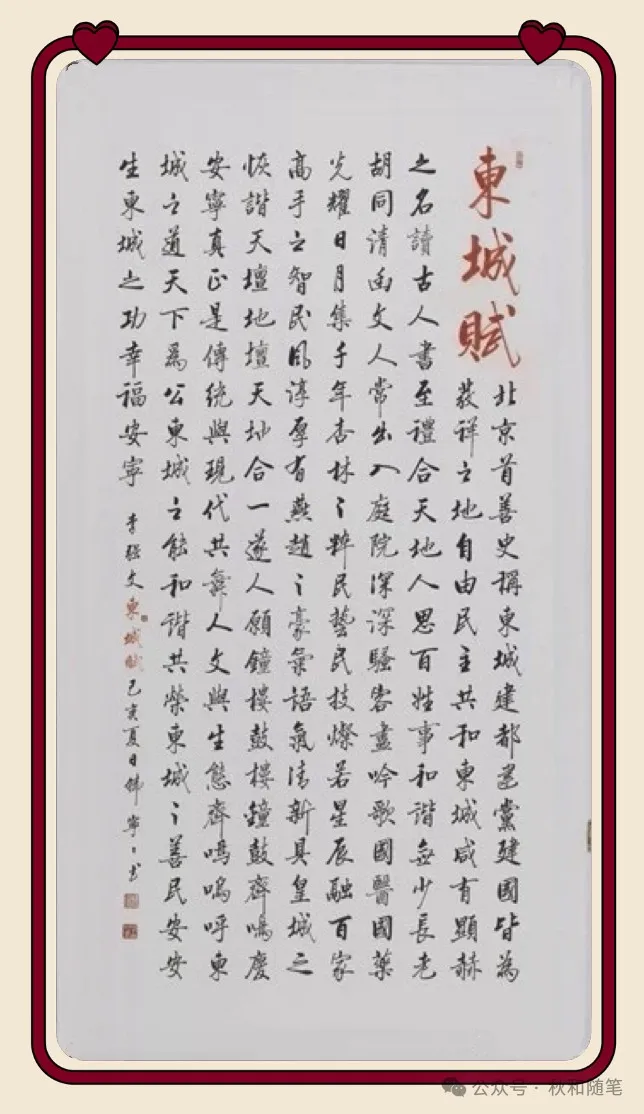 東城賦
北京首善史稱東城建都建黨建國皆為
發祥之地自由民主共和東城咸有顯赫
之名讀古人書至禮合天地人思百姓事和諧無少長老
胡同清幽文人常出入庭院深深騷客盡吟歌國醫國藥
光耀日月集千年杏林之粹民藝民技燦若星辰融百家
高手之智民風淳厚有燕趙之豪氣語氣清新具皇城之
恢諧天壇地壇天地合一遂人願鐘樓鼓樓鐘鼓齊鳴慶
安寧真正是傳統與現代共舞人文與生態齊鳴嗚呼東
城之道天下為公東城之能和諧共榮東城之善民安安
生東城之功幸福安寧
李強文東城賦己亥夏日韓寧寧书
公众号·秋和随笔